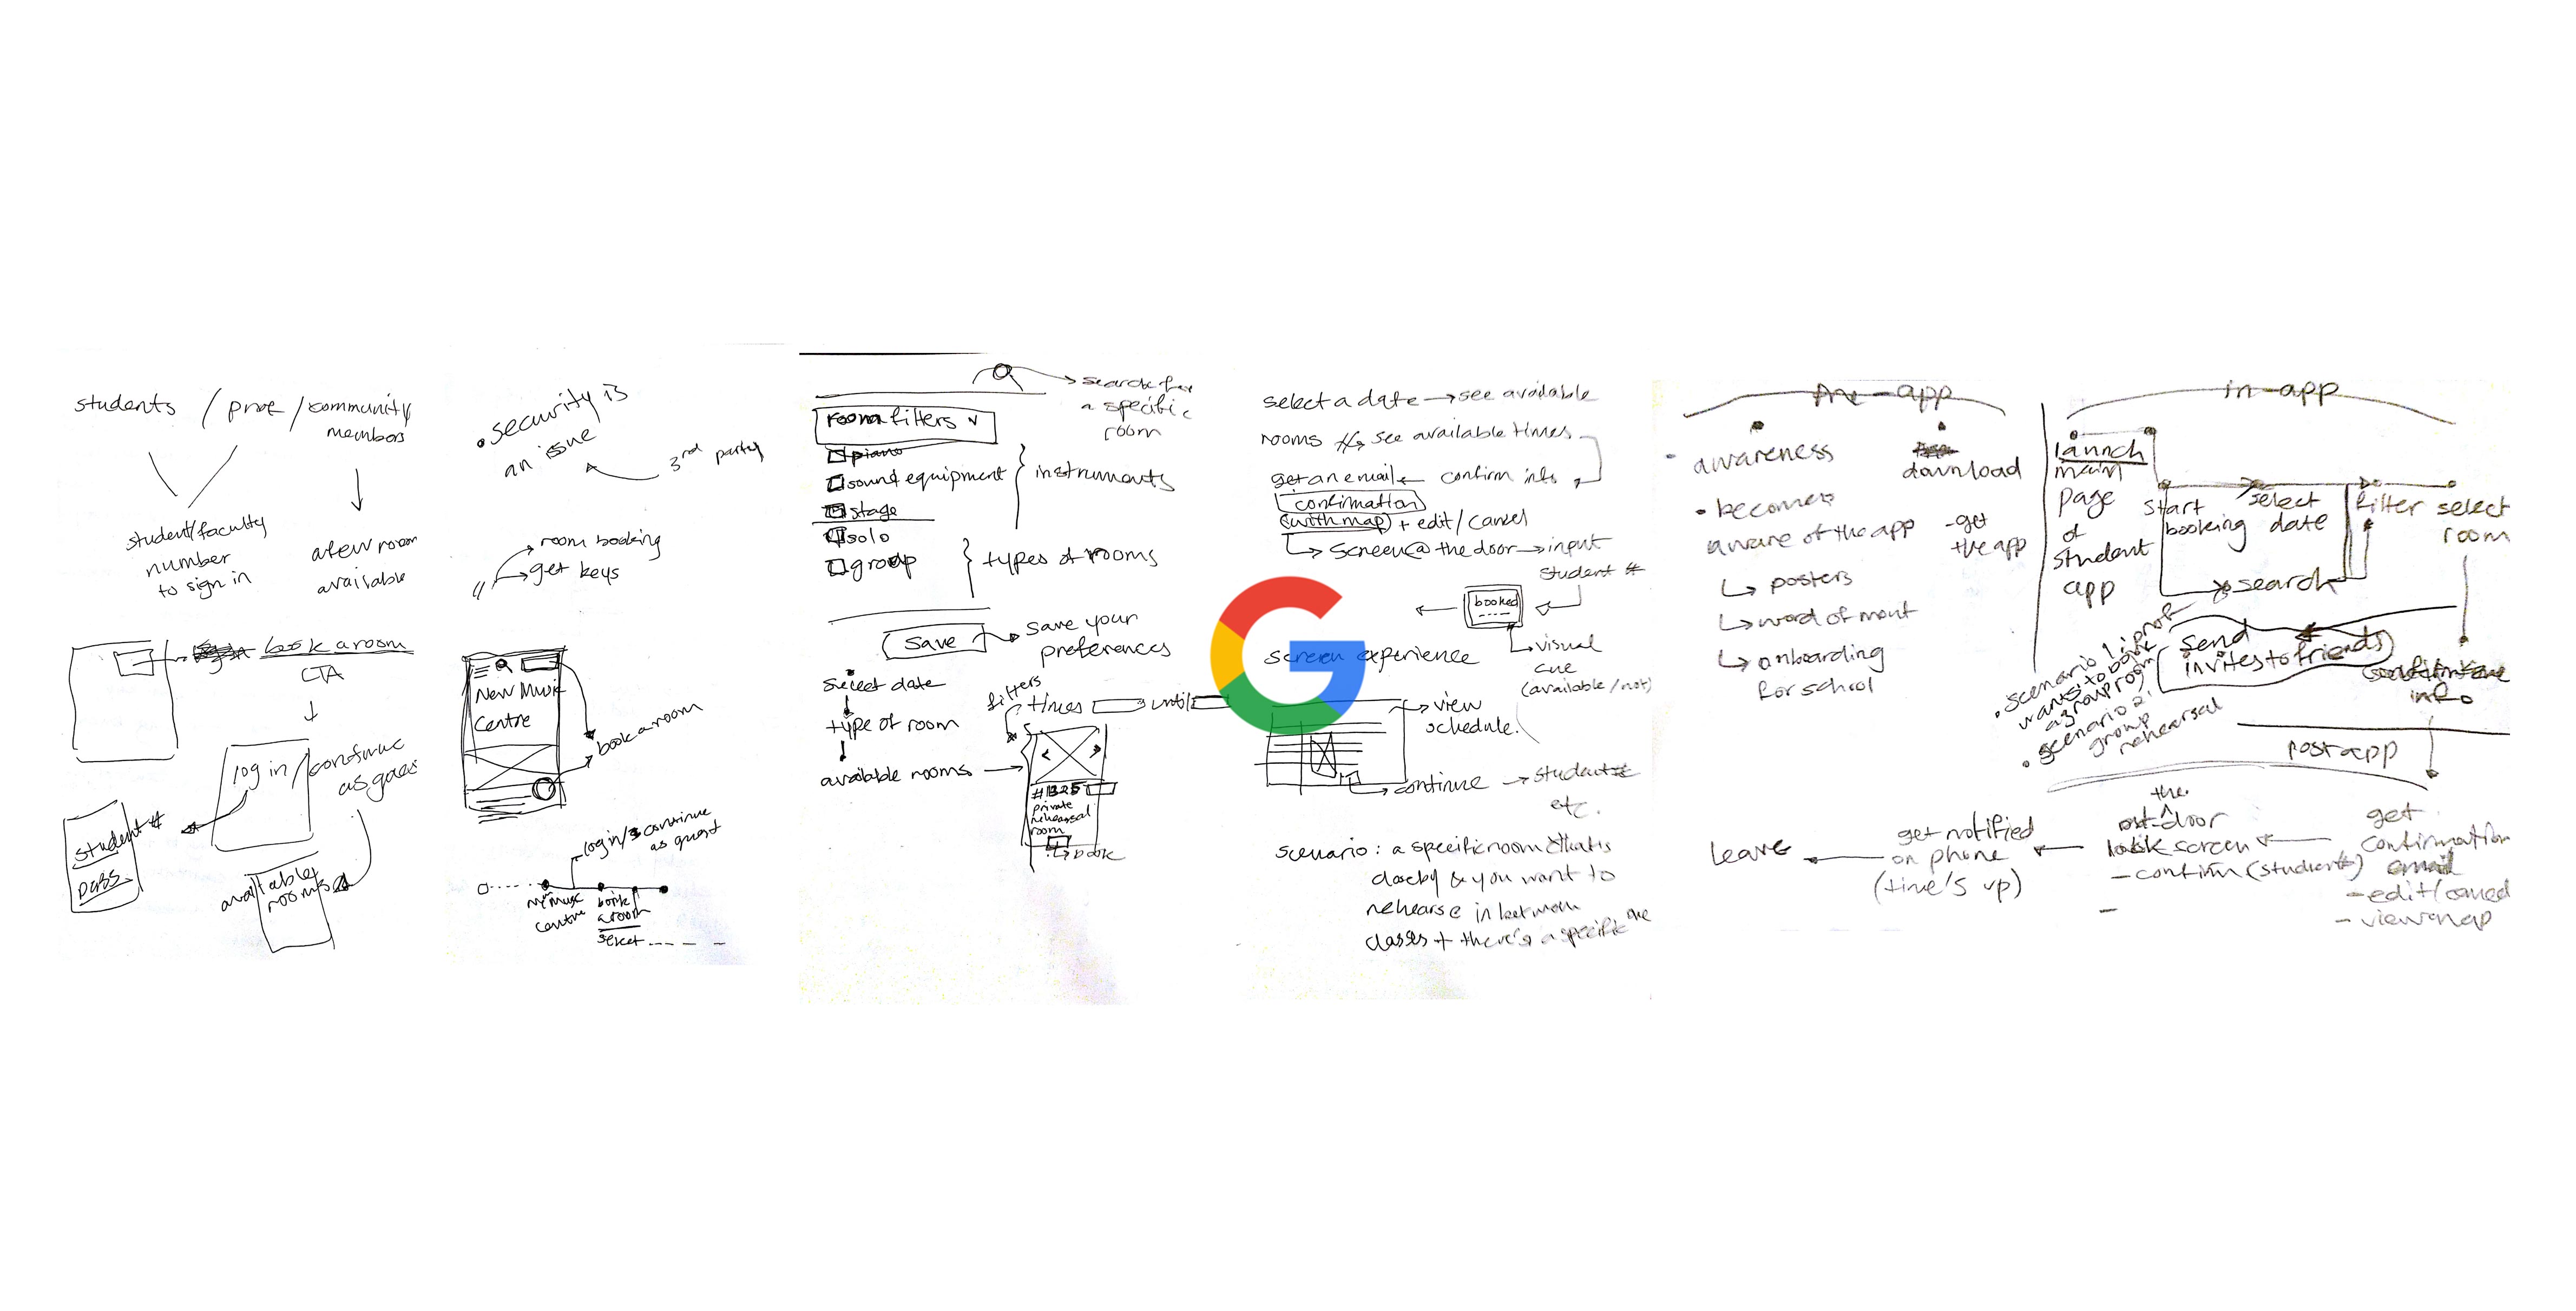 students / prof / community
members
student/faculty
number
to sign in
a few room
available
book a room
CTA
log in / continue
as
student #
pass
available
rooms
• security is
an issue
3rd party
room booking
get keys
New Music
Centre
book a room
login/continue
as guest
music
centre
book
a room
select
search for
a specific
room
room filters
piano
sound equipment
stage
instruments
solo
group
types of rooms
save
save your
preferences
select date
type of room
available rooms
filters
times
until
#1325
private
rehearsal
room
book
select a date → see available
rooms
see available times
confirm info
get an email
confirmation
(with map) + edit/cancel
screen @ the door → input
student #
booked
visual
cue
(available/not)
screen experience
view
schedule.
continue → student #
etc.
scenario: a specific room that is
closeby & you want to
rehearse in between
classes + there's a specific one
Pre-app
awareness
download
• becomes
aware of the app
-get
the app
posters
word of mout
onboarding
for school
in-app
launch
main
page
of
student
app
start
booking
select
date
filter
select
room
search
send
invites to friends
info
• scenario 1: prof
wants to book
a group
• scenario 2:
group
rehearsal
post app
get
confirmation
email
-edit/cancel
-view map
the
door
screen
-confirm (student#)
get notified
on phone
(time's up)
leave